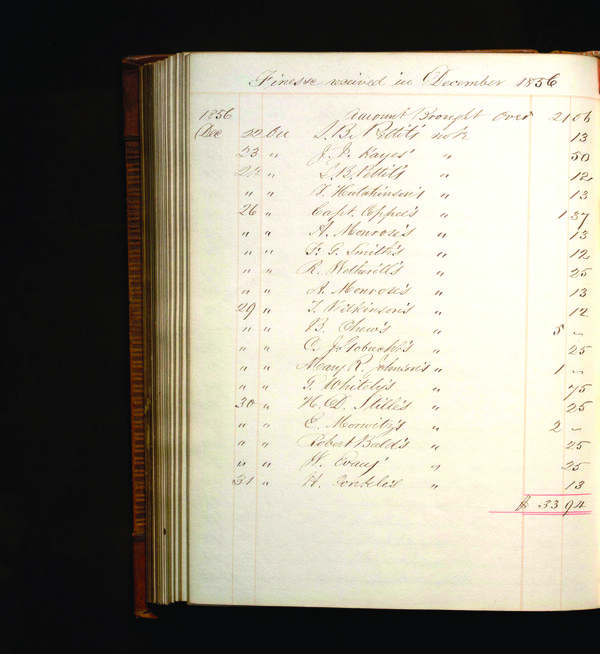 Finesse received in December 1856
1856 Amount Brought over 21 06
Dec 22 On L. B. Pettit's note 13
23 " J. J. Kayes' " 50
24 " L. B. Pettit's " 12
" " T. Hutchinson's " 13
26 " Capt. Coppee's " 1 37
" " A. Monrose's " 13
" " F. G. Smith's " 12
" " R. Wetherill's " 25
" " A. Monrose's " 13
29 " T. Wilkinson's " 12
" " B. Chew's " 5 ~
" " C. " 25
" " Mary R. Johnson's " 1 ~
" " G. Whitely's " 75
30 " H. D. Stille's " 25
" " E. Morwitz's " 2 ~
" " Robert Bald's " 25
" " W. Evans' " 25
31 " H. 13
$ 33 94